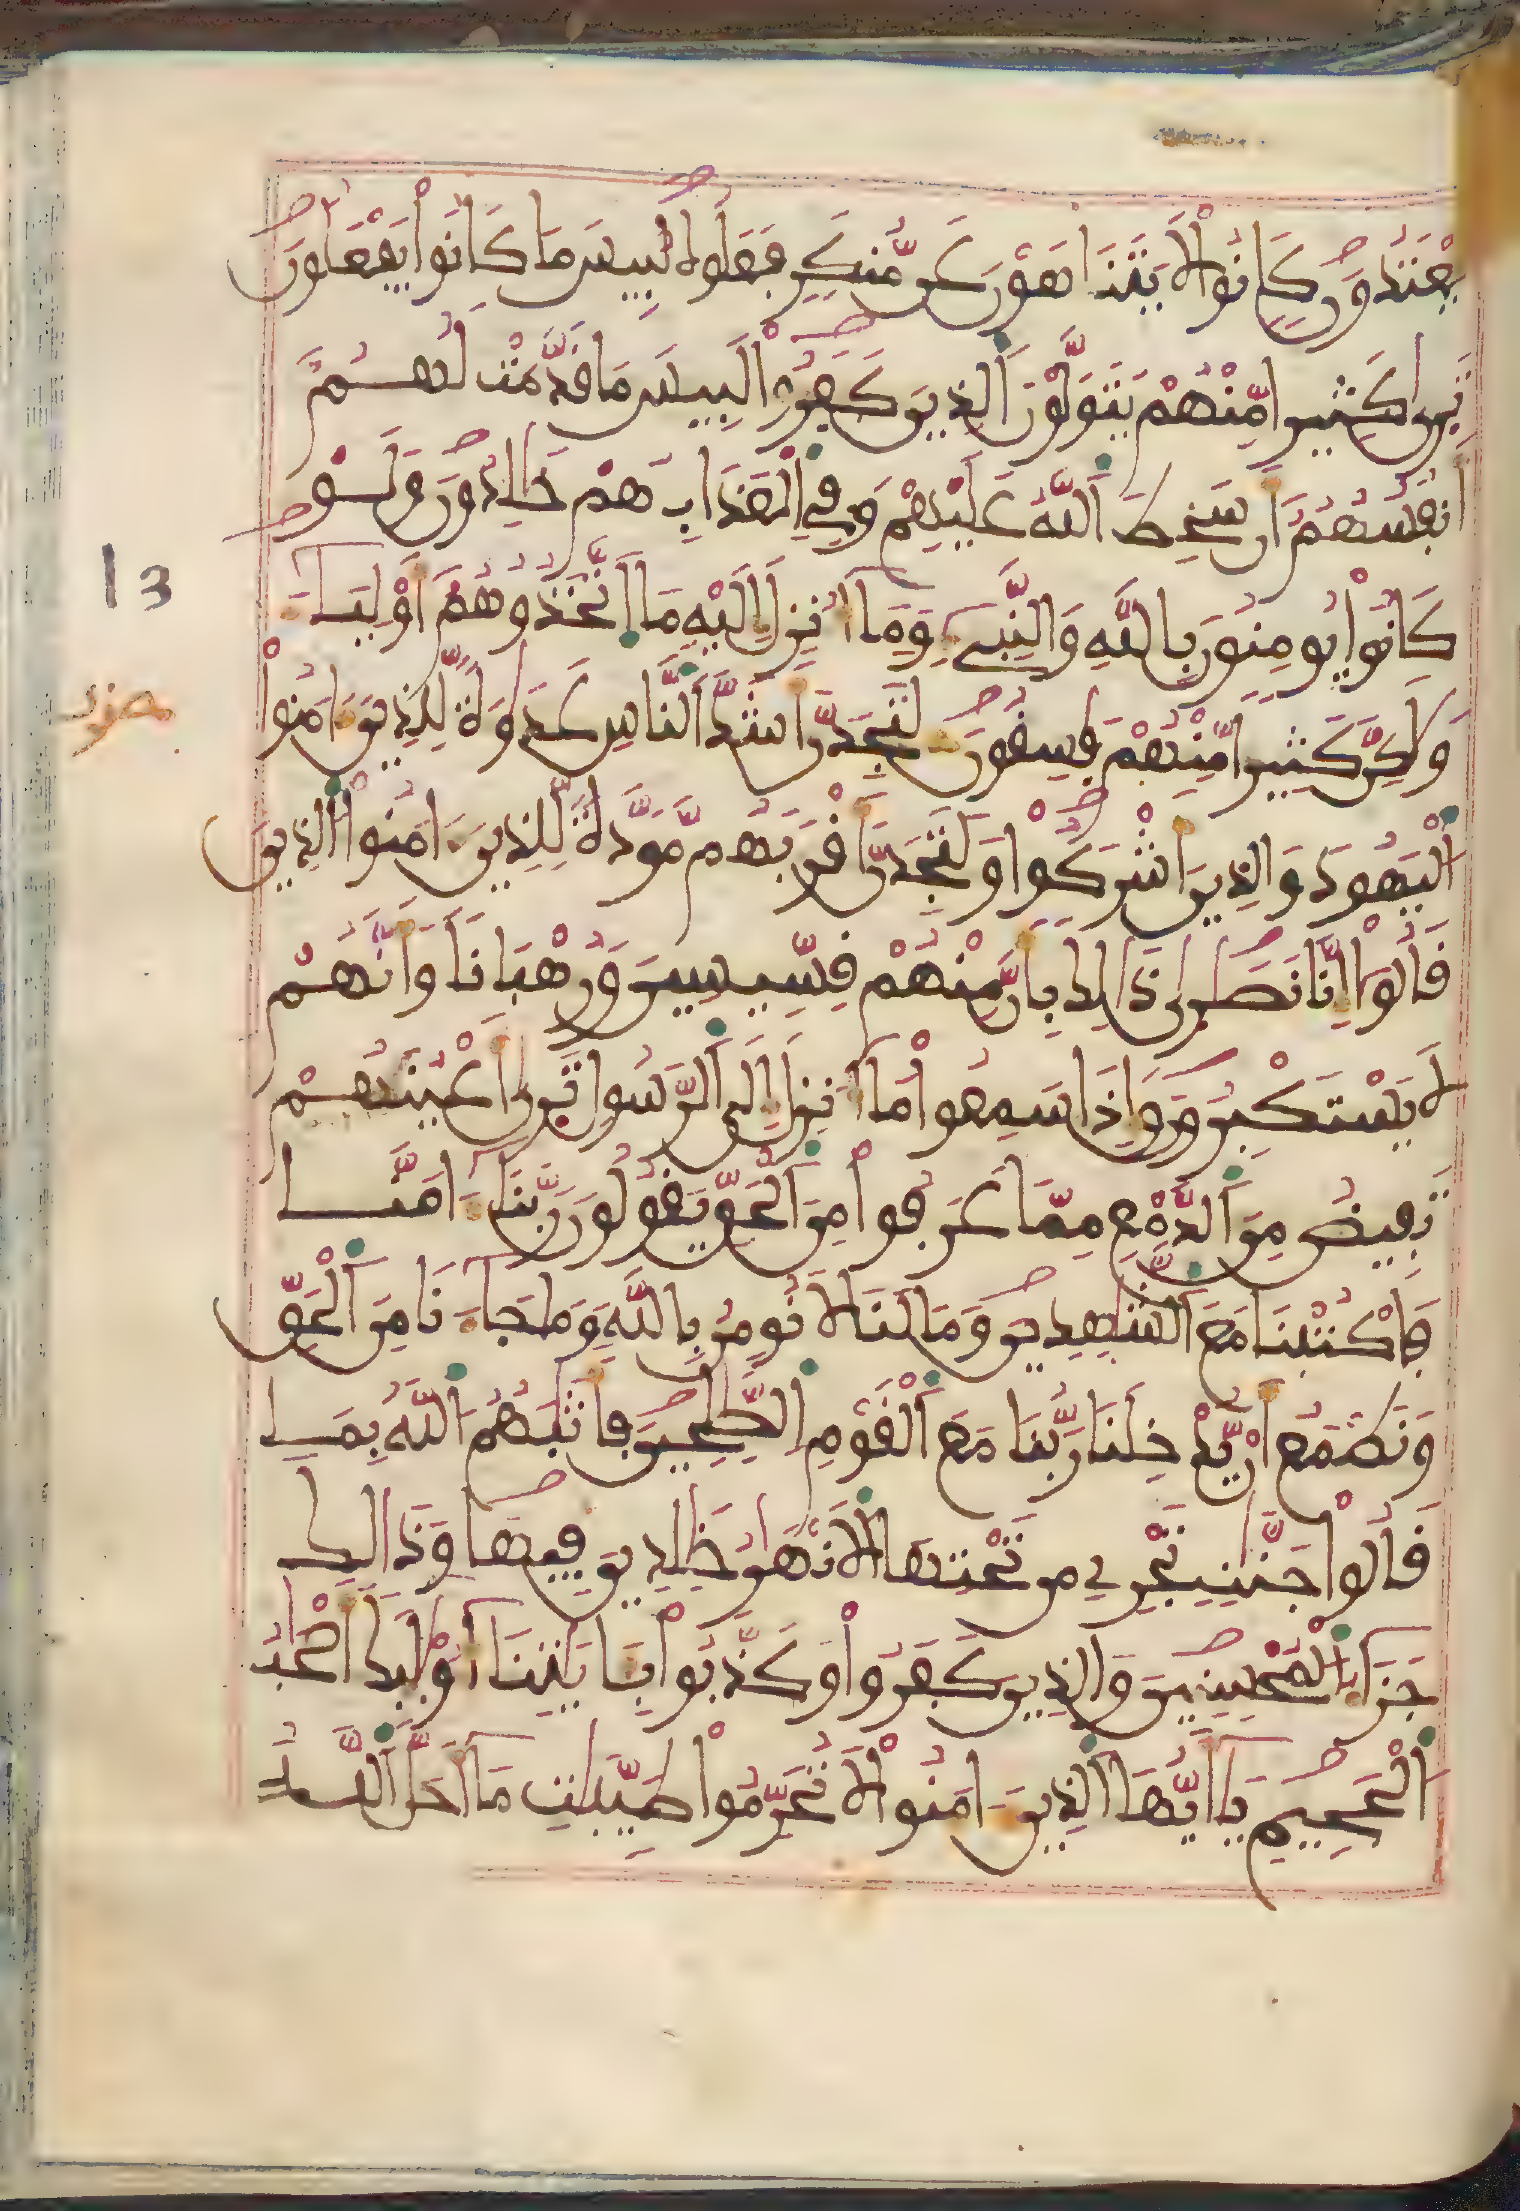 يَعْتَدُونَ كَانُواْ لَا يَتَنَاهَوْنَ عَن مُّنكَرٍ فَعَلُوهُ لَبِيسَ مَا كَانُواْ يَفْعَلُونَ
تَرَىٰ كَثِيرا مِّنْهُمْ يَتَوَلَّوْنَ اَ۬لذِينَ كَفَرُواْ لَبِيسَ مَا قَدَّمَتْ لَهُمُ
أَنفُسُهُمُ أَن سَخِطَ اَ۬للَّهُ عَلَيْهِمْ وَفِي اِ۬لْعَذَابِ هُمْ خَٰلِدُونَ وَلَوْ
كَانُواْ يُومِنُونَ بِاللَّهِ وَالنَّبِيءِ وَمَا أُنزِلَ إِلَيْهِ مَا اَ۪تَّخَذُوهُمُ أَوْلِيَاءَ
وَلَٰكِنَّ كَثِيرا مِّنْهُمْ فَٰسِقُونَ لَتَجِدَنَّ أَشَدَّ اَ۬لنَّاسِ عَدَٰوَة لِّلذِينَ ءَامَنُواْ
اُ۬لْيَهُودَ وَالذِينَ أَشْرَكُواْ وَلَتَجِدَنَّ أَقْرَبَهُم مَّوَدَّة لِّلذِينَ ءَامَنُواْ اُ۬لذِينَ
قَالُواْ إِنَّا نَصَٰرَىٰ ذَٰلِكَ بِأَنَّ مِنْهُمْ قِسِّيسِينَ وَرُهْبَانا وَأَنَّهُمْ
لَا يَسْتَكْبِرُونَ وَإِذَا سَمِعُواْ مَا أُنزِلَ إِلَى اَ۬لرَّسُولِ تَرَىٰ أَعْيُنَهُمْ
تَفِيضُ مِنَ اَ۬لدَّمْعِ مِمَّا عَرَفُواْ مِنَ اَ۬لْحَقِّ يَقُولُونَ رَبَّنَا ءَامَنَّا
فَاكْتُبْنَا مَعَ اَ۬لشَّٰهِدِينَ وَمَا لَنَا لَا نُومِنُ بِاللَّهِ وَمَا جَاءَنَا مِنَ اَ۬لْحَقِّ
وَنَطْمَعُ أَن يُّدْخِلَنَا رَبُّنَا مَعَ اَ۬لْقَوْمِ اِ۬لصَّٰلِحِينَ فَأَثَٰبَهُمُ اُ۬للَّهُ بِمَا
قَالُواْ جَنَّٰتٍ تَجْرِي مِن تَحْتِهَا اَ۬لْأَنْهَٰرُ خَٰلِدِينَ فِيهَا وَذَٰلِكَ
جَزَاءُ اُ۬لْمُحْسِنِينَ وَالذِينَ كَفَرُواْ وَكَذَّبُواْ بِـَٔايَٰتِنَا أُوْلَٰئِكَ أَصْحَٰبُ
اُ۬لْجَحِيمِ يَا أَيُّهَا اَ۬لذِينَ ءَامَنُواْ لَا تُحَرِّمُواْ طَيِّبَٰتِ مَا أَحَلَّ اَ۬للَّهُ
13